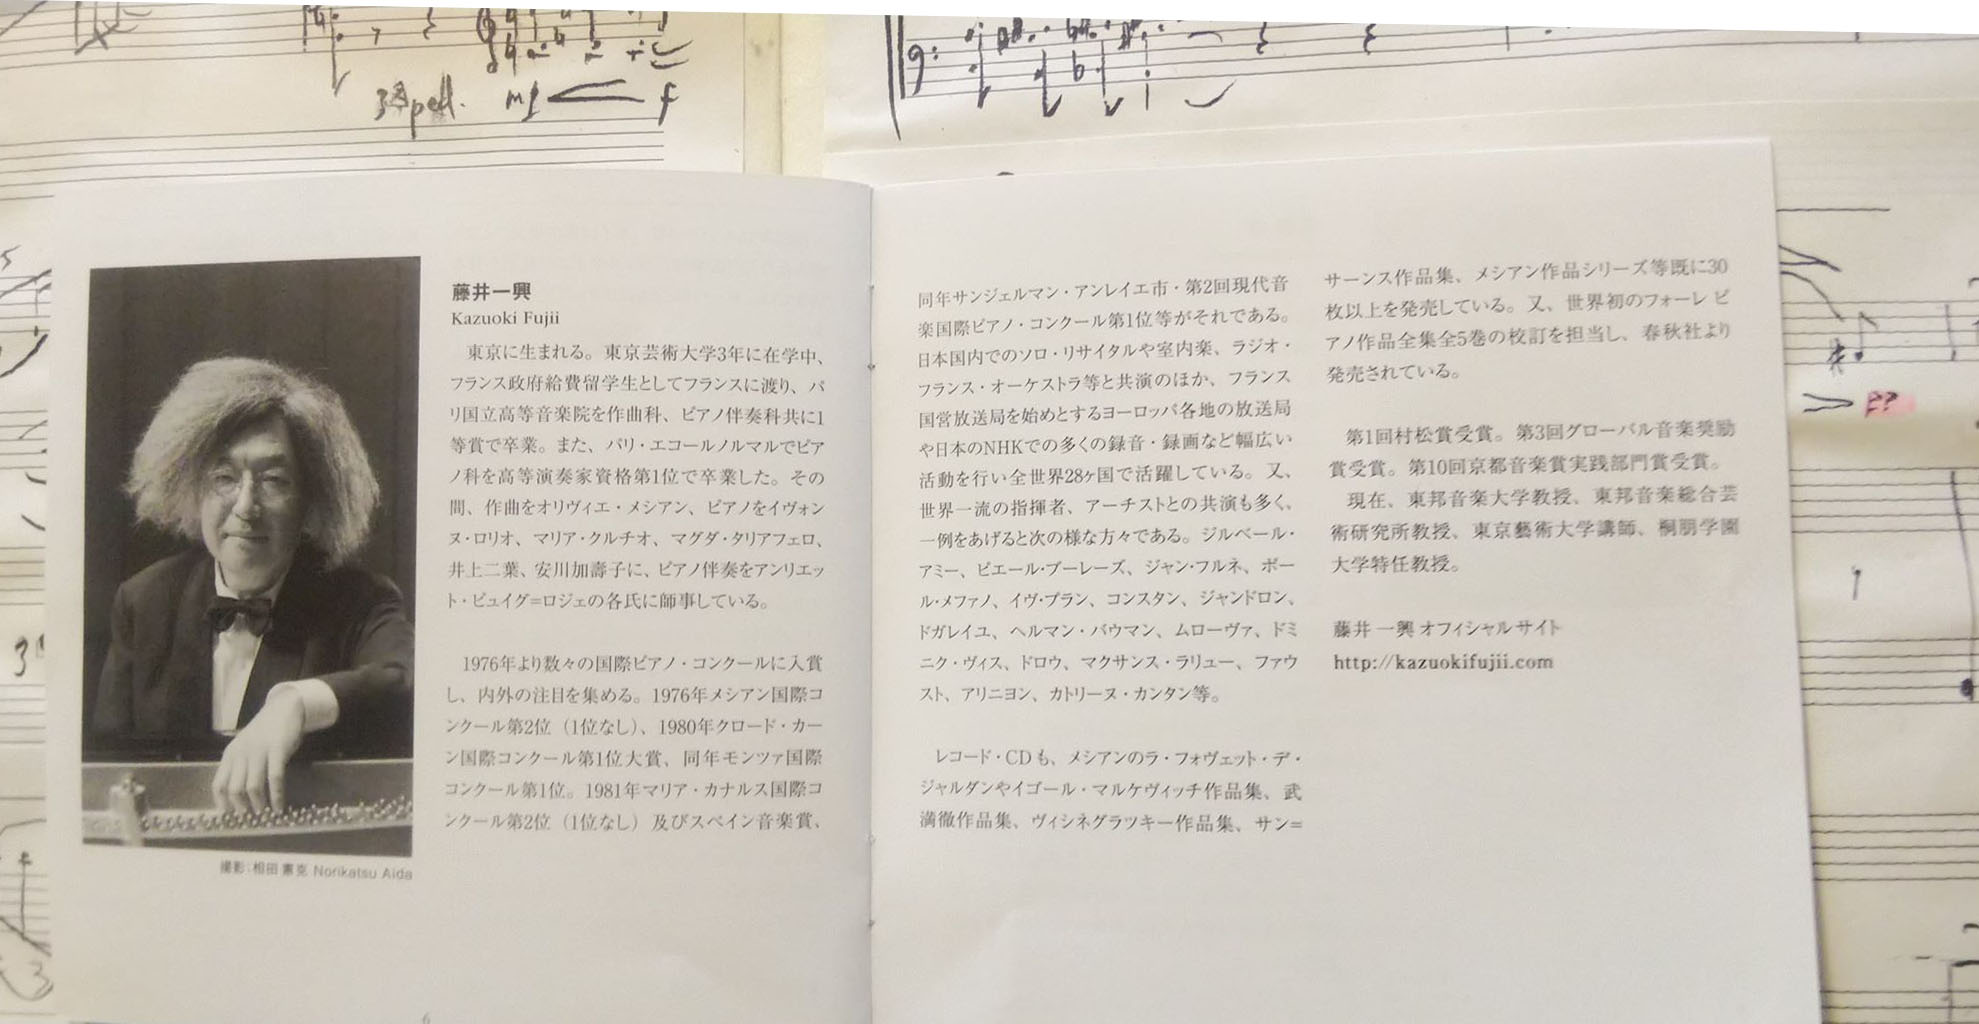 3 ped. mf f
藤井一興
Kazuoki Fujii
東京に生まれる。東京芸術大学3年に在学中、
フランス政府給費留学生としてフランスに渡り、パ
リ国立高等音楽院を作曲科、ピアノ伴奏科共に1
等賞で卒業。また、パリ・エコールノルマルでピア
ノ科を高等演奏家資格第1位で卒業した。その
間、作曲をオリヴィエ・メシアン、ピアノをイヴォン
ヌ・ロリオ、マリア・クルチオ、マグダ・タリアフェロ、
井上二葉、安川加壽子に、ピアノ伴奏をアンリエッ
ト・ピュイグ=ロジェの各氏に師事している。
1976年より数々の国際ピアノ・コンクールに入賞
し、内外の注目を集める。1976年メシアン国際コ
ンクール第2位（1位なし）、1980年クロード・カー
ン国際コンクール第1位大賞、同年モンツァ国際
コンクール第1位。1981年マリア・カナルス国際コ
ンクール第2位（1位なし）及びスペイン音楽賞、
撮影：相田 憲克 Norikatsu Aida
6
同年サンジェルマン・アンレイエ市・第2回現代音
楽国際ピアノ・コンクール第1位等がそれである。
日本国内でのソロ・リサイタルや室内楽、ラジオ・
フランス・オーケストラ等と共演のほか、フランス
国営放送局を始めとするヨーロッパ各地の放送局
や日本のNHKでの多くの録音・録画など幅広い
活動を行い全世界28ヶ国で活躍している。又、
世界一流の指揮者、アーチストとの共演も多く、
一例をあげると次の様な方々である。ジルベール・
アミー、ピエール・ブーレーズ、ジャン・フルネ、ポー
ル・メファノ、イヴ・プラン、コンスタン、ジャンドロン、
ドガレイユ、ヘルマン・バウマン、ムローヴァ、ドミ
ニク・ヴィス、ドロウ、マクサンス・ラリュー、ファウ
スト、アリニヨン、カトリーヌ・カンタン等。
レコード・CDも、メシアンのラ・フォヴェット・デ・
ジャルダンやイゴール・マルケヴィッチ作品集、武
満徹作品集、ヴィシネグラツキー作品集、サン=
サーンス作品集、メシアン作品シリーズ等既に30
枚以上を発売している。又、世界初のフォーレ ピ
アノ作品全集全5巻の校訂を担当し、春秋社より
発売されている。
第1回村松賞受賞。第3回グローバル音楽奨励
賞受賞。第10回京都音楽賞実践部門賞受賞。
現在、東邦音楽大学教授、東邦音楽総合芸
術研究所教授、東京藝術大学講師、桐朋学園
大学特任教授。
藤井 一興 オフィシャルサイト
http://kazuokifujii.com